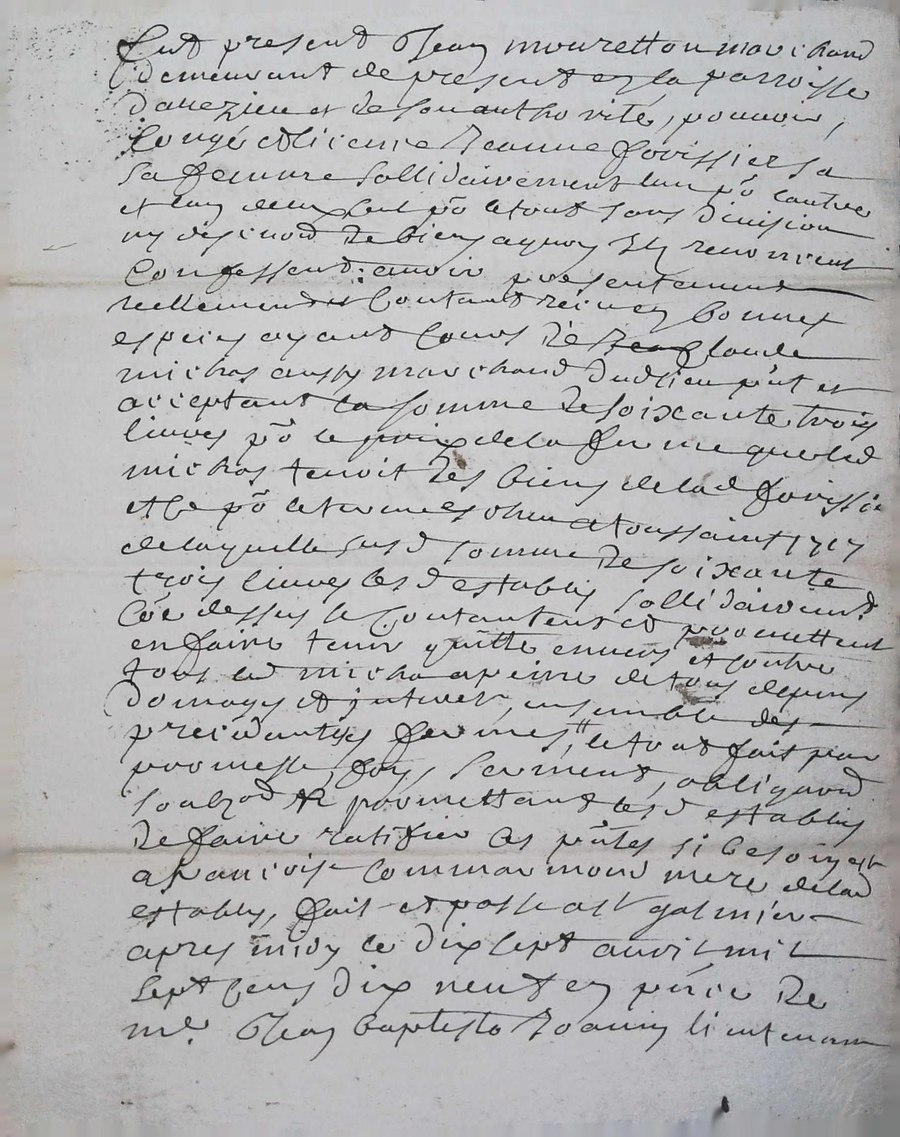 Fut present Jean mouretton marchand
demeurant de present en la parroisse
davezieu et de son authorité, pouvoir,
congé et licence Jeanne fovissier sa
sa femme sollidairement lun pō lautre
et lun deux seul pō le tout sans division
ny discuōn de biens aquoy Ils renoncent
Confessent: avoir presentement
reellement et Contant receu en bonnes
especes ayant cours de Jean Claude
michas aussy marchand dudlieu pñt et
acceptant la somme de soixante trois
livres pō le prix de la ferme que led
michas tenoit des biens de lad fovissier
et ce pō le terme eschu a toussaint 1717
de laquelle susd somme de soixante
trois livres les d establis sollidairemt
Cōe dessus se Contantent et promettent
en faire tenir quitte envers et contre
tous led micha a peine de tous depens
domages et interest, ensemble des
precedantes fermes, le tout fait par
promesse, foy, serment, obligaōn
soubzōn & promettant les d establis
de faire ratifier ces pñtes si besoin est
a francoise Commarmond mere de lad
establie, fait et passé a st galmier
apres midy le dix sept avril mil
sept cens dix neuf en pñce de
me. Jean baptiste Joanin lieutenant